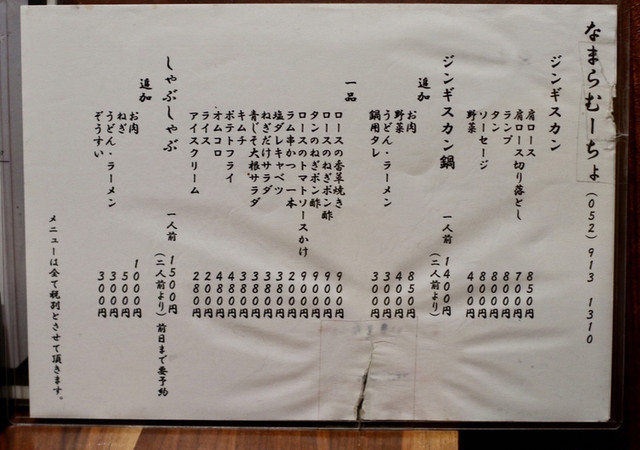 なまらむーちょ (052) 913 1310
ジンギスカン
肩ロース 850円
肩ロース切り落とし 700円
ランプ 800円
タン 800円
ソーセージ 800円
野菜 400円
ジンギスカン鍋 一人前 1400円 (二人前より)
追加
お肉 850円
野菜 400円
うどん・ラーメン 300円
鍋用タレ 300円
一品
ロースの香草焼き 900円
ロースのねぎポン酢 900円
タンのねぎポン酢 900円
ロースのトマトソースかけ 900円
ラム串かつ 一本 200円
塩ダレキャベツ 380円
ねぎだけサラダ 380円
青じそ大根サラダ 380円
キムチ 380円
ポテトフライ 480円
オムコロ 480円
ライス 200円
アイスクリーム 280円
しゃぶしゃぶ 一人前 1500円 (二人前より) 前日まで要予約
追加
お肉 1000円
ねぎ 500円
うどん・ラーメン 300円
ぞうすい 300円
メニューは全て税別とさせて頂きます。